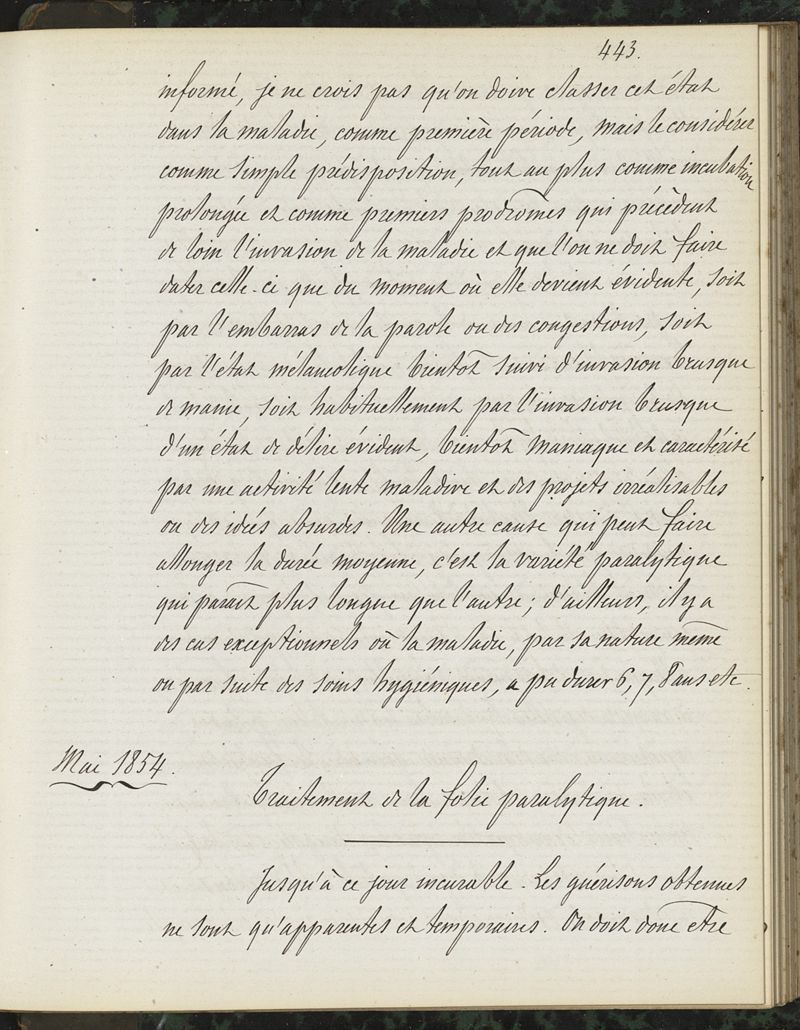 443.
informé, je ne crois pas qu'on doive classer cet état
dans la maladie, comme première période, mais le considérer
comme simple prédisposition, tout au plus comme incubation
prolongée et comme premiers prodromes qui précèdent
de loin l'invasion de la maladie et que l'on ne doit faire
dater celle-ci que du moment où elle devient évidente, soit
par l'embarras de la parole ou des congestions, soit
par l'état mélancolique bientôt suivi d'invasion brusque
de manie, soit habituellement par l'invasion brusque
d'un état de délire évident, bientôt maniaque et caractérisé
par une activité lente maladive et des projets irréalisables
ou des idées absurdes. Une autre cause qui peut faire
allonger la durée moyenne, c'est la variété paralytique
qui parait plus longue que l'autre; d'ailleurs, il y a
des cas exceptionnels où la maladie, par sa nature même
ou par suite des soins hygiéniques, a pu durer 6, 7, 8 ans etc.
Mai 1854.
Traitement de la folie paralytique.
Jusqu'à ce jour incurable. Les guérisons obtenues
ne sont qu'apparentes et temporaires. On doit donc être